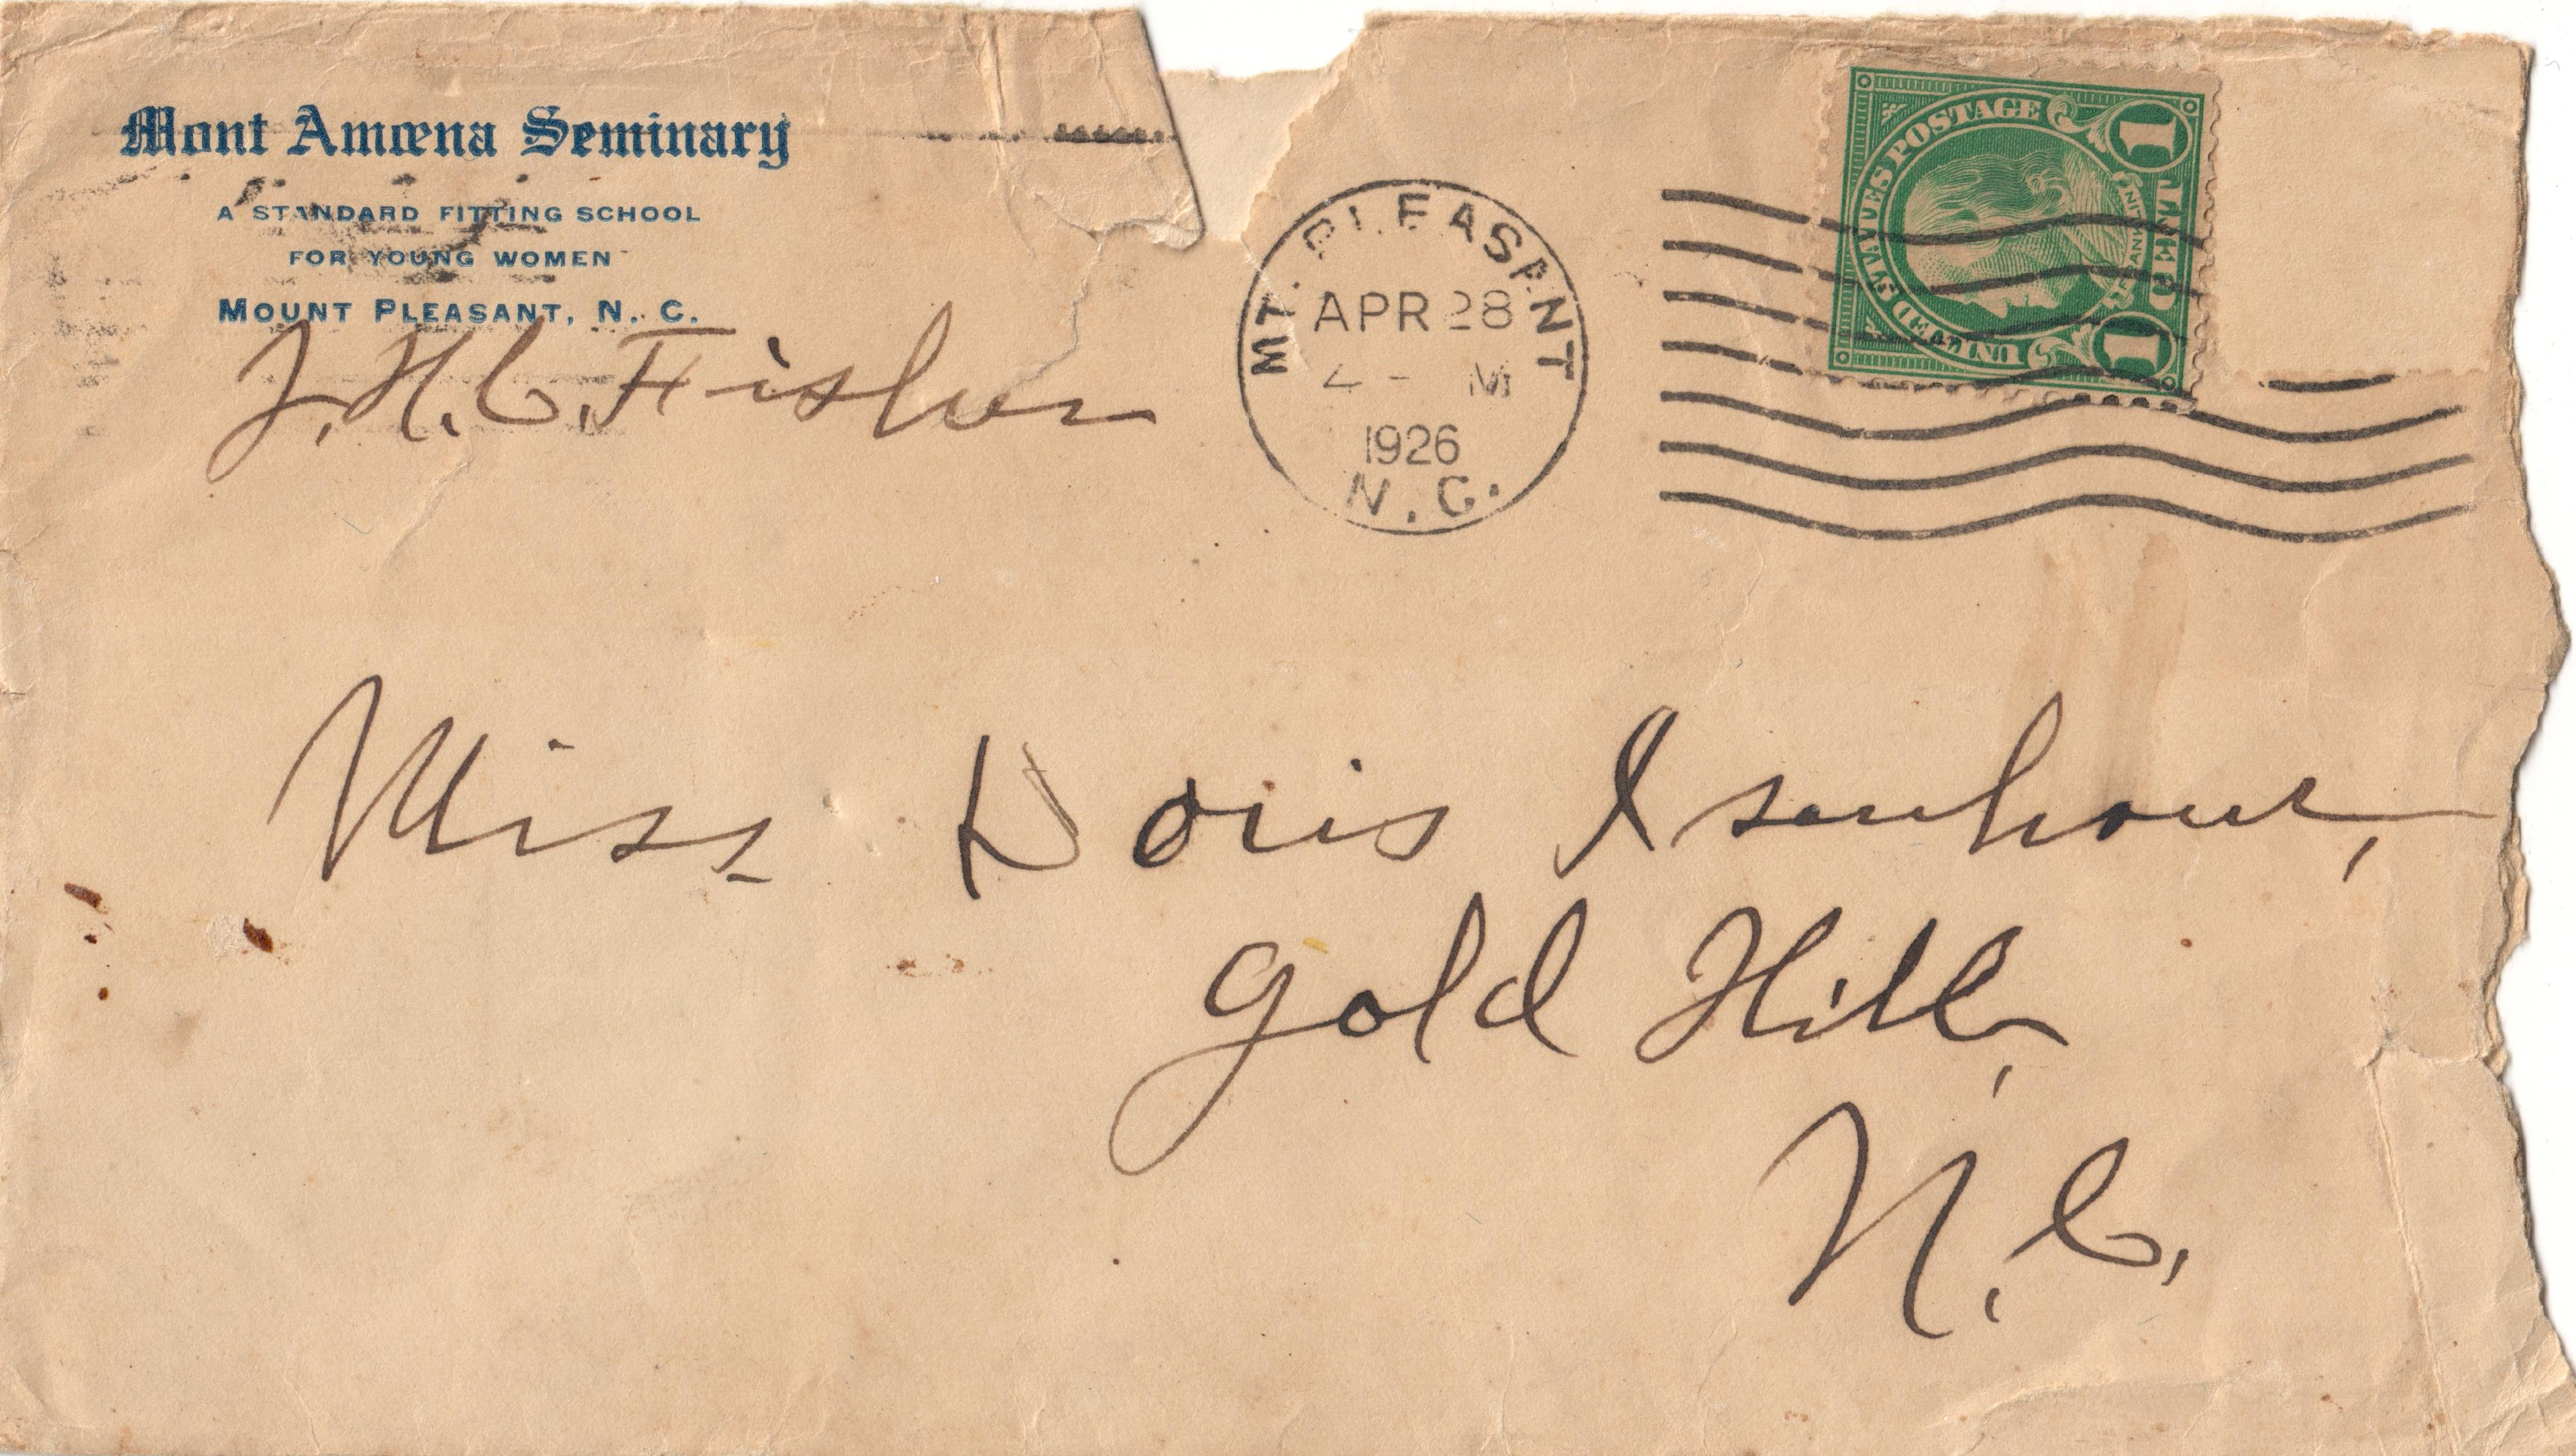 Mont Amœna Seminary
A STANDARD FITTING SCHOOL
FOR YOUNG WOMEN
MOUNT PLEASANT, N. C.
J. H. C. Fisher
MT. PLEASANT
APR 28
4 - M
1926
N.C.
UNITED STATES POSTAGE
FRANKLIN
1 CENT 1
Miss Doris Isenhour,
Gold Hill,
N. C.